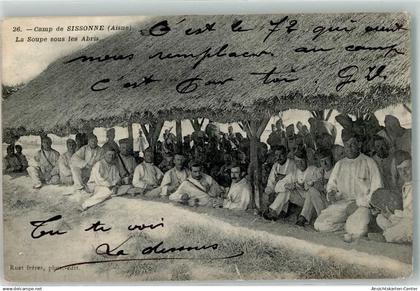 26. - Camp de SISSONNE (Aisne)
La Soupe sous les Abris
C'est le 72 qui vient
nous remplacer au camp
C'est par toi
Tu vois
La dessus
Ruet frères, phot.-édit.
© Ansichtskarten-Center.de